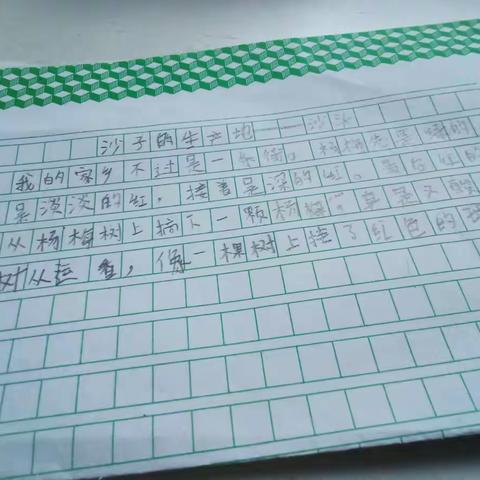 沙子的生产地——沙头
我的家乡不过是一条街。杨梅先是
呈淡淡的红，接着呈深的红。最后红的
从杨梅树上摘下一颗杨梅。真是又酸
树从，像一棵树上挂了红色的